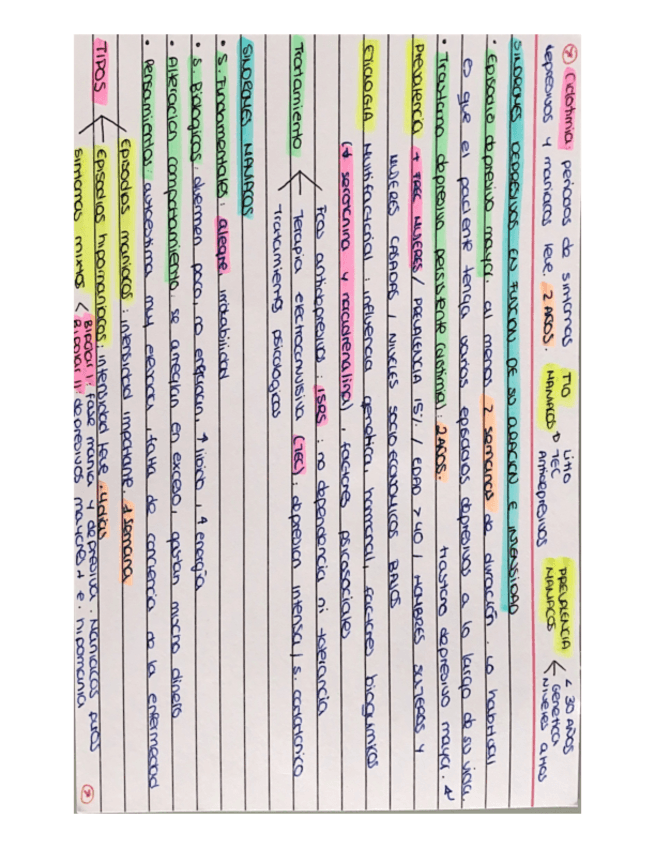 Ciclotimia: periodos de síntomas
depresivos y maniacos leve. 2 AÑOS.
TTO MANIACOS → Litio
TEC
Antidepresivos
PREVALENCIA MANIACOS < 30 AÑOS
Genética
Niveles altos
SINDROMES DEPRESIVOS EN FUNCION DE SU DURACION E INTENSIDAD
· Episodio depresivo mayor: al menos 2 semanas de duración. Lo habitual
es que el paciente tenga varios episodios depresivos a lo largo de su vida.
· Trastorno depresivo persistente (distimia): 2 AÑOS. trastorno depresivo mayor.
PREVALENCIA + FREC MUJERES / PREVALENCIA 15% / EDAD > 40 / HOMBRES SOLTEROS Y
MUJERES CASADAS / NIVELES SOCIOECONOMICOS BAJOS
ETIOLOGIA Multifactorial: influencia genética, hormonal, factores bioquimicos
(↓ serotonina y noradrenalina), factores psicosociales
Tratamiento Fcos antidepresivos: ISRS: no dependencia ni tolerancia
Terapia electroconvulsiva (TEC): depresion intensa / s. catatonico
Tratamientos psicologicos
SINDROMES MANIACOS
· S. Fundamentales: alegre, irritabilidad
· S. Biologicos: duermen poco, no engordan, ↑ libido, ↑ energia
· Alteracion comportamiento: se arreglan en exceso, gastan mucho dinero
· Pensamientos: autoestima muy elevada, falta de conciencia de la enfermedad
TIPOS Episodios maniacos: intensidad importante. 1 semana
Episodios hipomaniacos: intensidad leve. 4 dias
Sintomas mixtos < Bipolar I: fase mania y depresiva. Maniacos puros
Bipolar II: depresivos mayores + e. hipomania